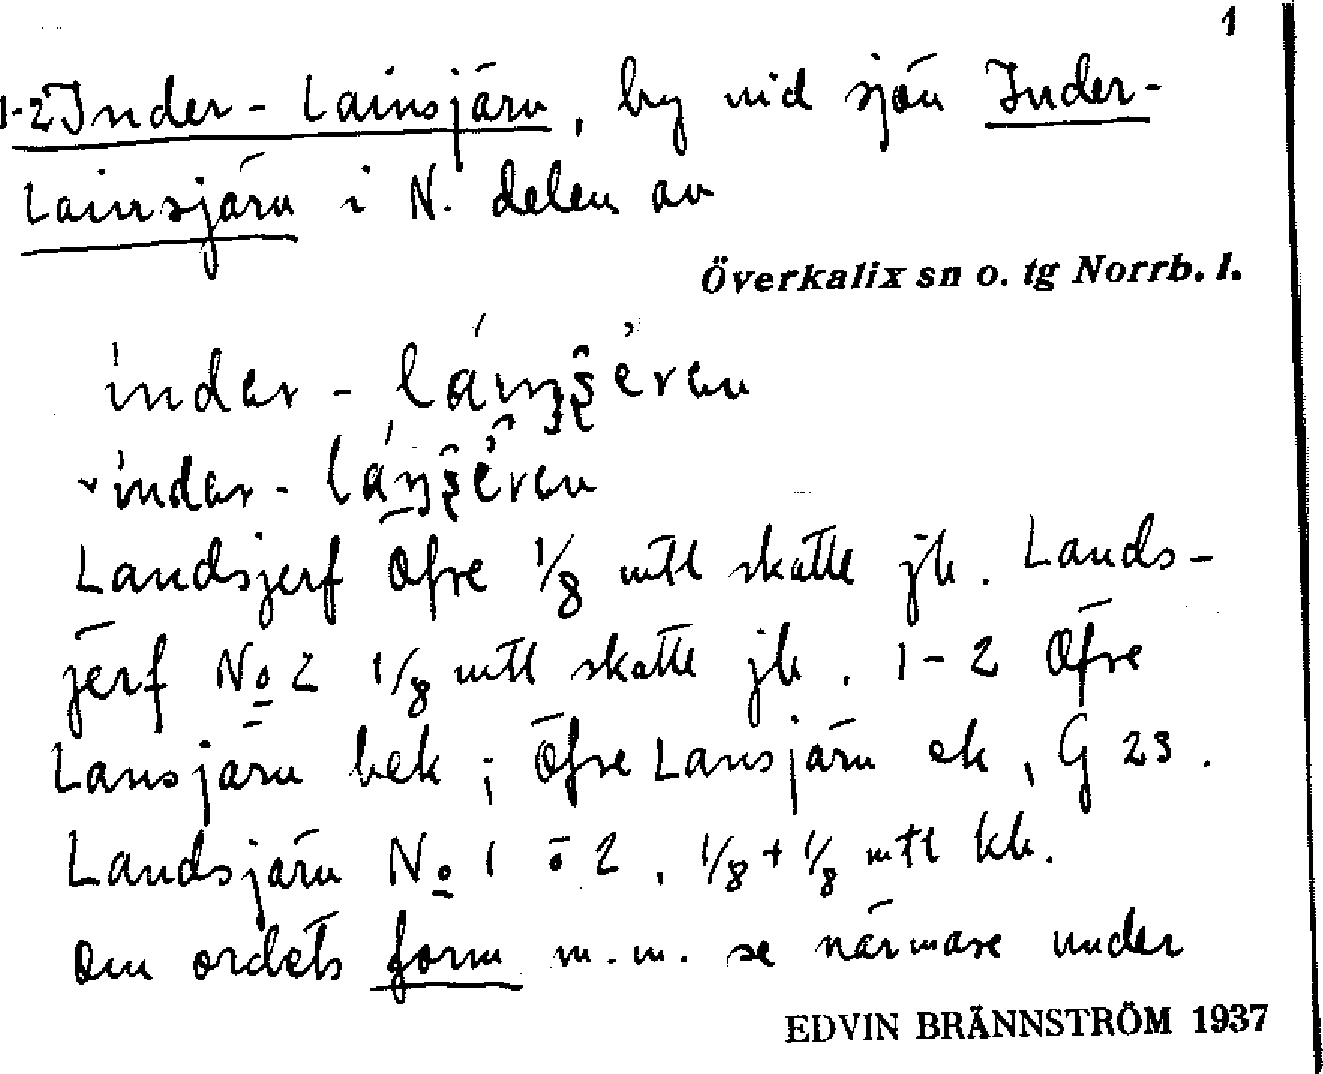 1
1-2 Inder-Lainsjärn, by vid sjön Inder-
Lainsjärn i N. delen av
Överkalix sn o. tg Norrb. l.
Landsjerf Öfre 1/8 mtl skatte jb. Lands-
jerf No 2 1/8 mtl skatte jb. 1-2 Öfre
Lansjärn bek ; Öfre Lansjärn ek, G 23.
Landsjärn No 1 o 2, 1/8 + 1/8 mtl kb.
Om ordets form m.m. se närmare under
EDVIN BRÄNNSTRÖM 1937